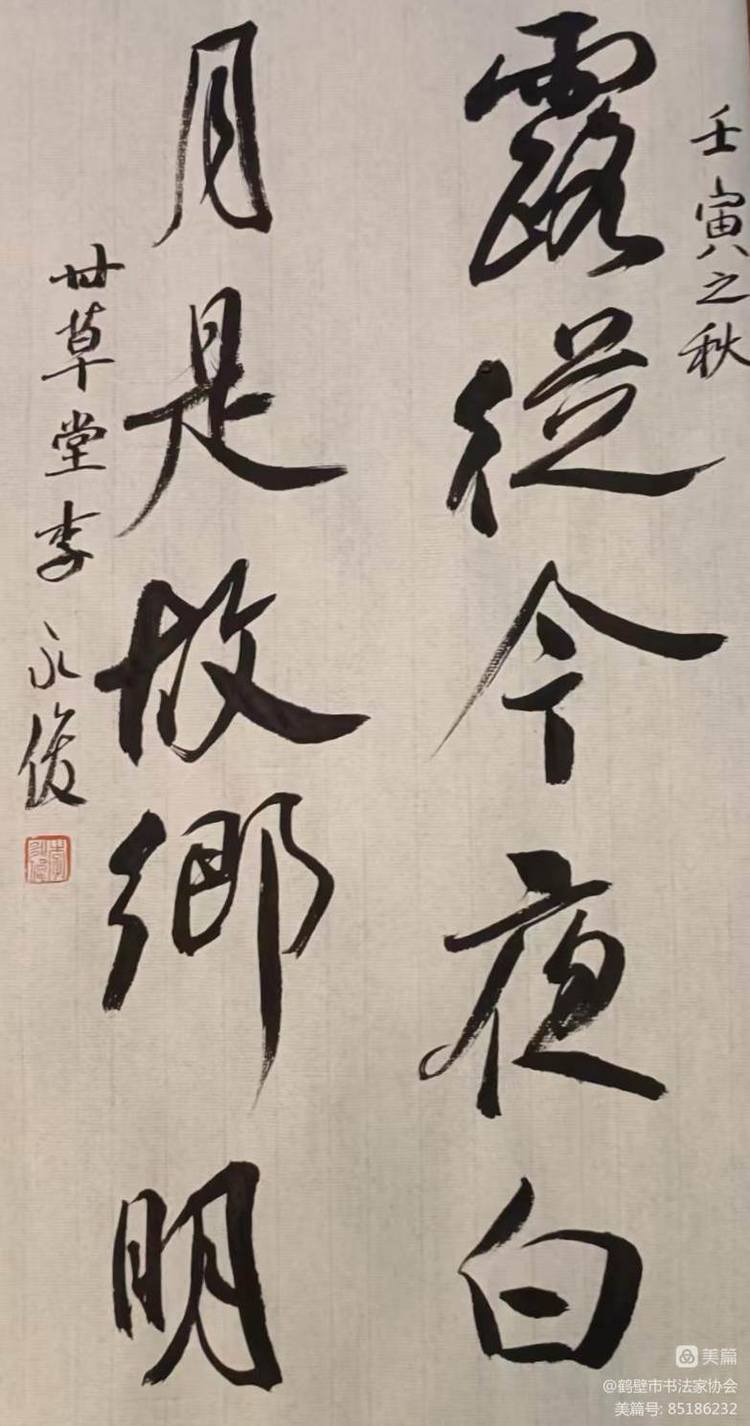 壬寅之秋
露從今夜白
月是故鄉明
世草堂李永俊
美篇
@鹤壁市书法家协会
美篇号: 85186232